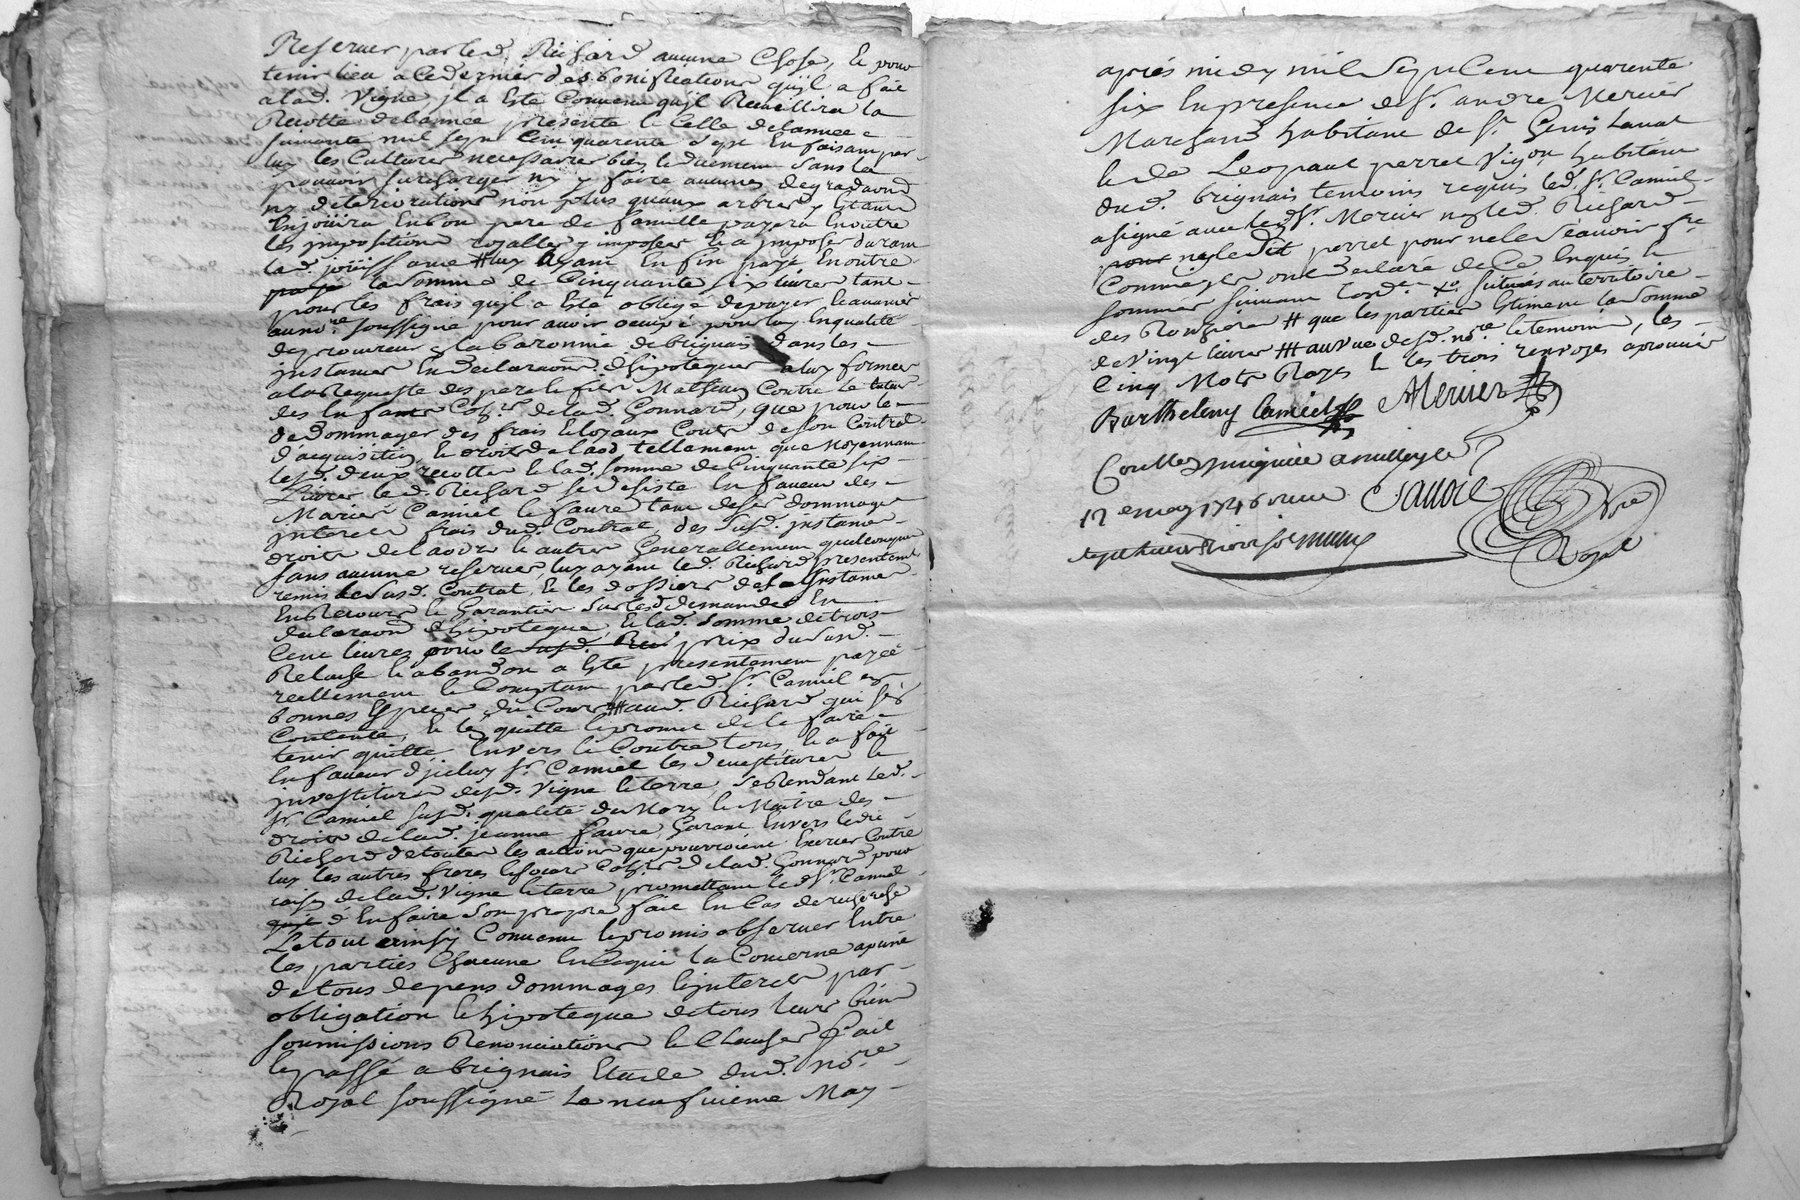 Reserver par led. Richard aucune Chose, Et pour
tenir lieu a ce dernier des bonifications quil a fait
a lad. Vigne, jl a Esté Convenu quil Recuillira la
Recotte de lannee presente & Celle de lannee
suivante mil sept Cent quarente sept En faisant par
luy les Cultures necessaires bien & duement Sans la
pouvoir surcharger ny y faire aucunes degradaons
ny deteriorations non plus quaux arbres y Etants
Enjoüira En bon pere de famille payera En outre
les jmpositions royalles y imposées & a jmposer durant
lad. joüissance # luy ayant En fin payé En outre
la Somme de Cinquante six livres tant
pour les frais quil a Esté obligé de payer, & avancer
au no.re Soussigné pour avoir ocupé pour luy En qualité
de procureur En la baronnie de brignais dans les
jnstances En declaraon d'hipoteques a luy formées
a la Requeste des pere & fils Mathieu Contre le tuteur
des Enfants Coh.rs de lad. Gonnard, que pour le
dedommager des frais & loyaux Couts de son Contrat
d'acquisition, & droits de laod tellement que Moyennant
lesd. deux recottes & lad. Somme de Cinquante six
Livres led. Richard se desiste En faveur des
Mariés Camiel & faure tant de ses dommages
interets frais dud. Contrat, des Susd. jnstances
droits de laods & autres Generallement quelconques
sans aucune reserve, luy ayant led. Richard presentement
remis le Susd. Contrat, & les dossiers des jnstances
En Recours & Garantie Sur lesd. demandes En
declaraon d'hipoteque, & lad. Somme de trois
Cent livres pour le prix du Susd.
Relache & abandon a Esté presentement payée
reellement & Comptant par led. S.r Camiel En
bonnes Especes du Cours ## aud. Richard qui s'est
Contenté, & le quitte & promet de le faire
tenir quitte Envers & Contre tous, & a fait
En faveur d'jceluy S.r Camiel les devestitures &
jnvestitures desd. Vigne & terre, se Rendant led.
S.r Camiel Susd. qualité de Mary & Maître des
droits de lad. jeanne faure Garant Envers ledit
Richard de toutes les actions que pourroient Exercer Contre
luy les autres freres & soeurs Coh.rs de lad. Gonnard pour
raison de lad. Vigne & terre promettant led. S.r Camiel
d'En faire Son propre fait En Cas de recherche
Le tout ainsy Convenu & promis observer Entre
les parties Chacune En ce qui la Concerne a peine
de tous depens dommages & jnterets par
obligation & hipoteque de tous leurs biens
soumissions Renonciations & Clauses fait
& passé a brignais Etude dud. no.re
Royal soussigné Le neufvieme May
aprés midy mil Sept Cent quarente
six En presence de S.r andré Mercier
Marchand habitant de S.t Genis Laval
& de Leopaul perret Vigon habitant
dud. brignais temoins requis led. S.r Camiel
a signé avec led. S.r Mercier ny led. Richard
ny ledit perret pour ne le Scavoir f.re
Comme jls ont declaré de Ce Enquis &
sommés suivant Lord.ce situés au territoire
des Rouzieres # que les parties Estiment la Somme
de Vingt livres ## au vue desd. no.re & temoins, les
Cinq Mots Rayés & les trois renvoyés aprouvés
Barthelemy Camiel
AMercier
Conllé
12 e may 1746
Sauoie
N.re
Royal